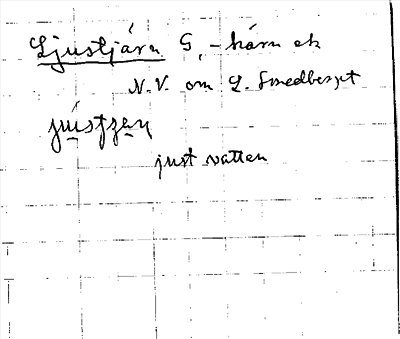 Ljustjärn G, -tjärn ek
N.V. om L. Smedberget
jústjæn
just vatten